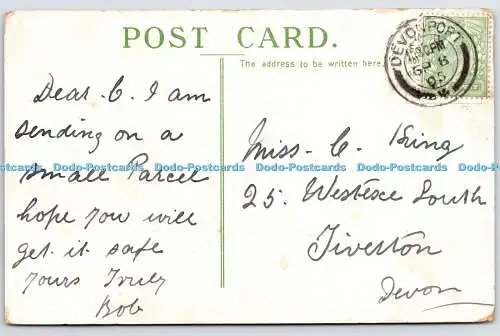 POST CARD.
The address to be written here.
Dear C. I am
sending on a
small Parcel
hope you will
get it safe
yours Truly
Bob
Miss C. King
25. Westexe South
Tiverton
Devon
DEVONPORT
Dodo-Postcards Dodo-Postcards Dodo-Postcards Dodo-Postcards Dodo-Postcards Dodo-Postcards